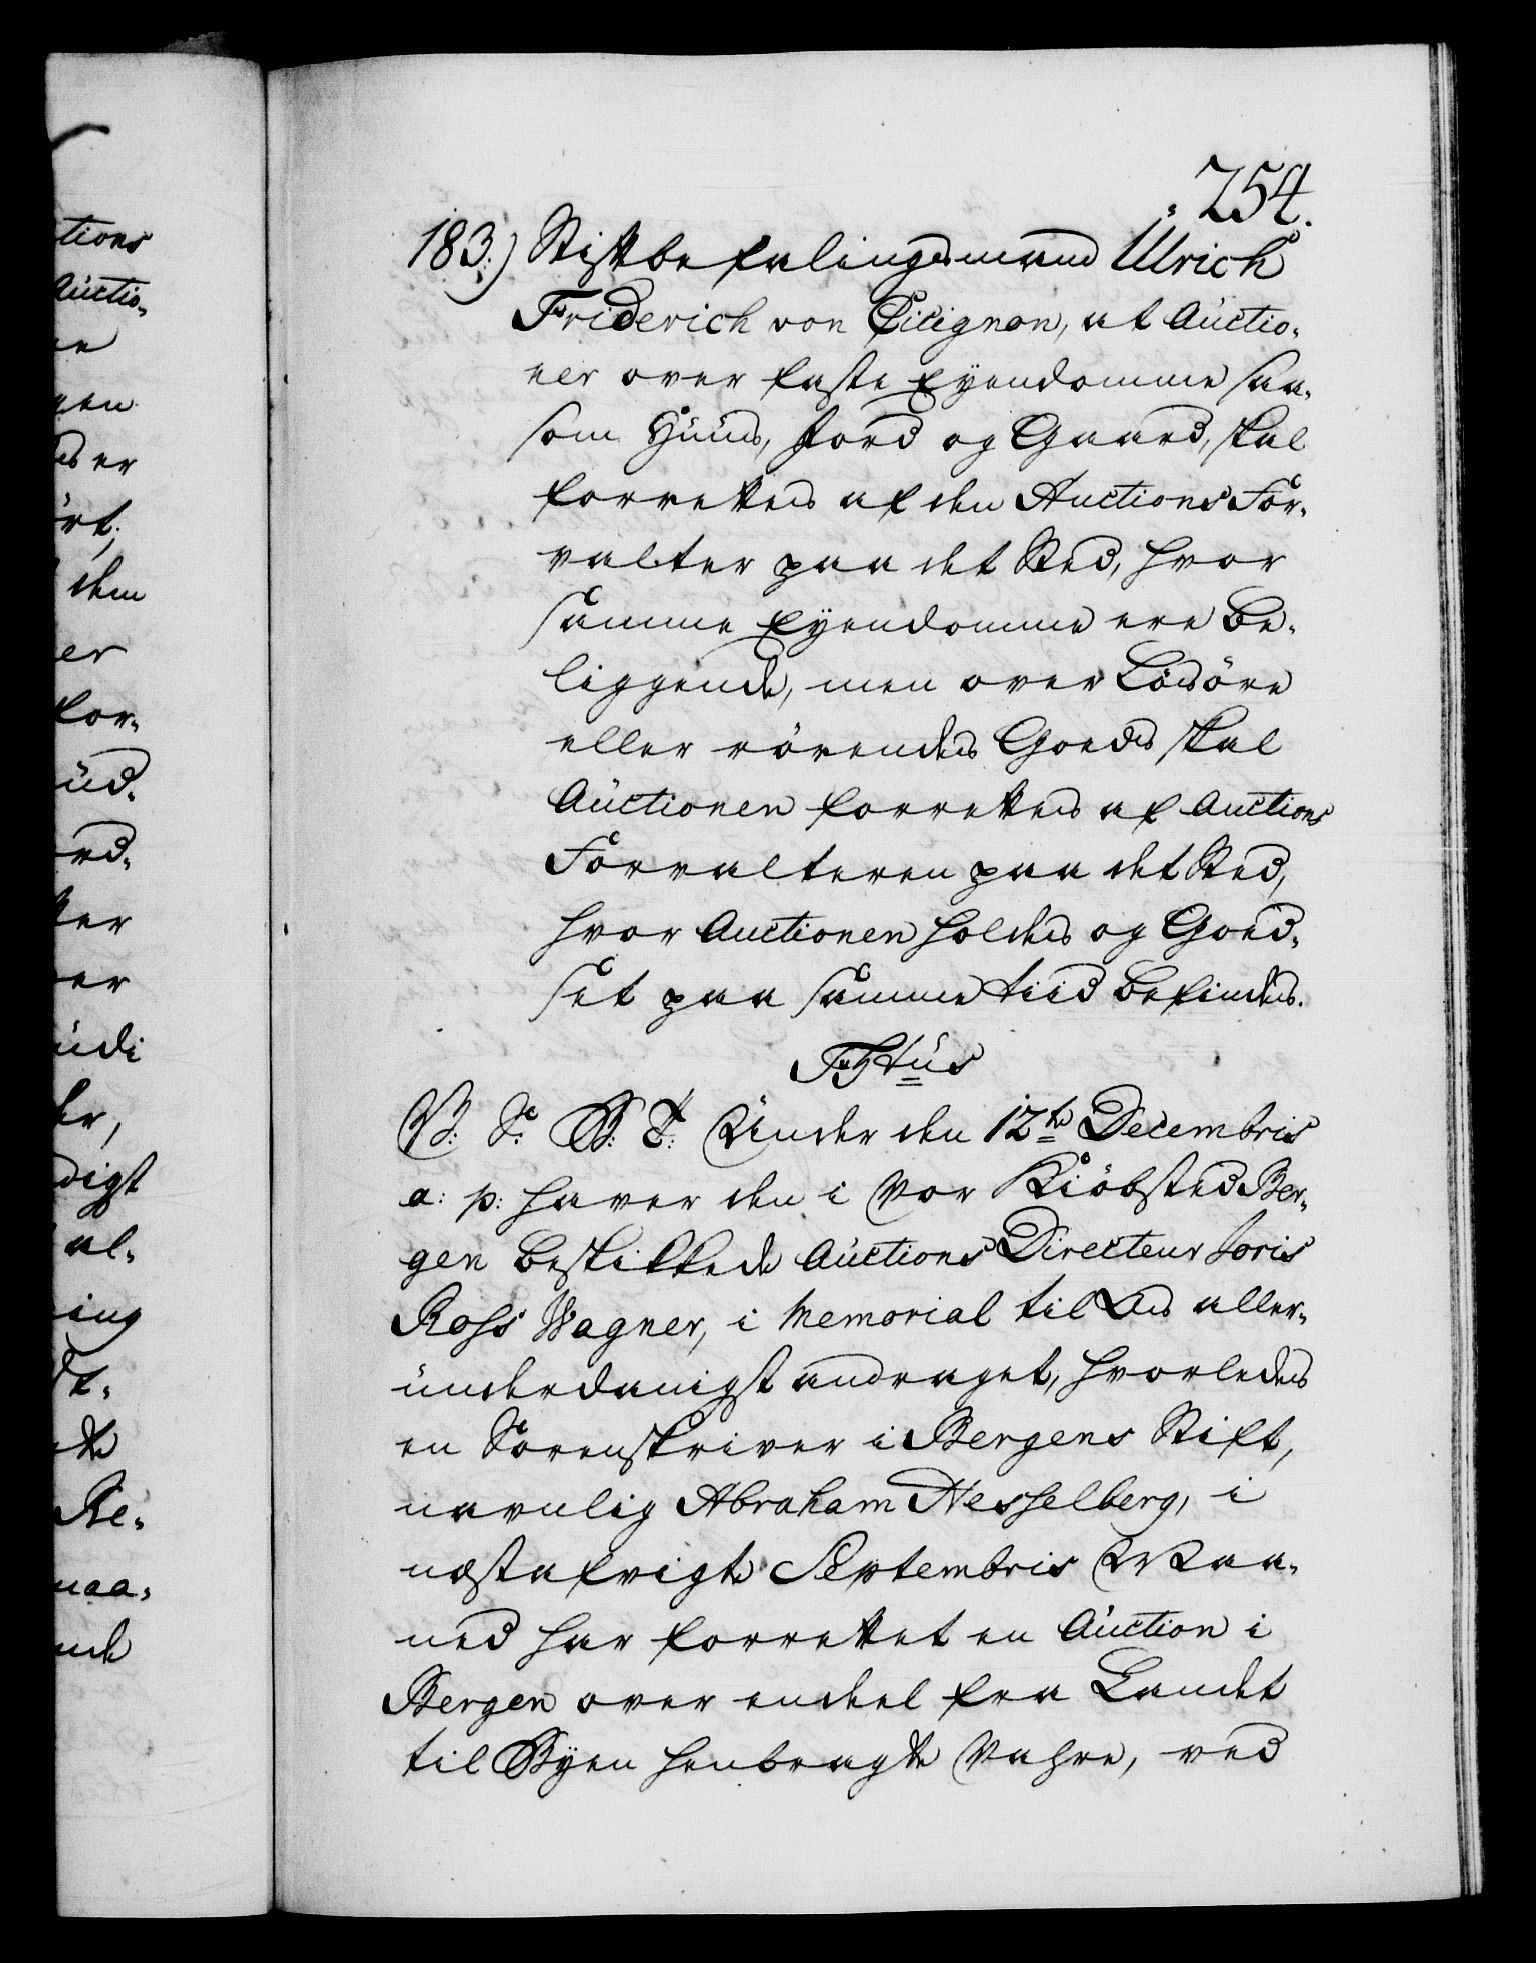 254.
183.) Stiftbefalingsmand Ulrich
Friderich von Cicignon, at Auctio-
ner over faste Eyendomme saa-
som Huus, Jord og Gaard, skal
forrettes af den Auctions For-
valter paa det Sted, hvor
samme Eyendomme ere be-
liggende, men over Lösöre
eller rörendes Goeds skal
Auctionen forrettes af Auctions
Forvalteren paa det Sted,
hvor Auctionen holdes og Goed-
set paa samme tiid befindes.
F5tus
V: S: G: T: Under den 12te Decembris
a: p: haver den i Vor Kiöbsted Ber-
gen beskikkede Auctions Directeur Joris
Ross Wagner, i Memorial til Os aller-
underdanigst andraget, hvorledes
en Sorenskriver i Bergens Stift,
navnlig Abraham Hesselberg, i
nestafvigte Septembris Maa-
ned har forrettet en Auction i
Bergen over endeel fra Landet
til Byen henbragte Vahre, ved
tions
Auctio-
gen
er
dem
er
for-
ud-
ord-
er
digt
al-
ing
Be-
maa-